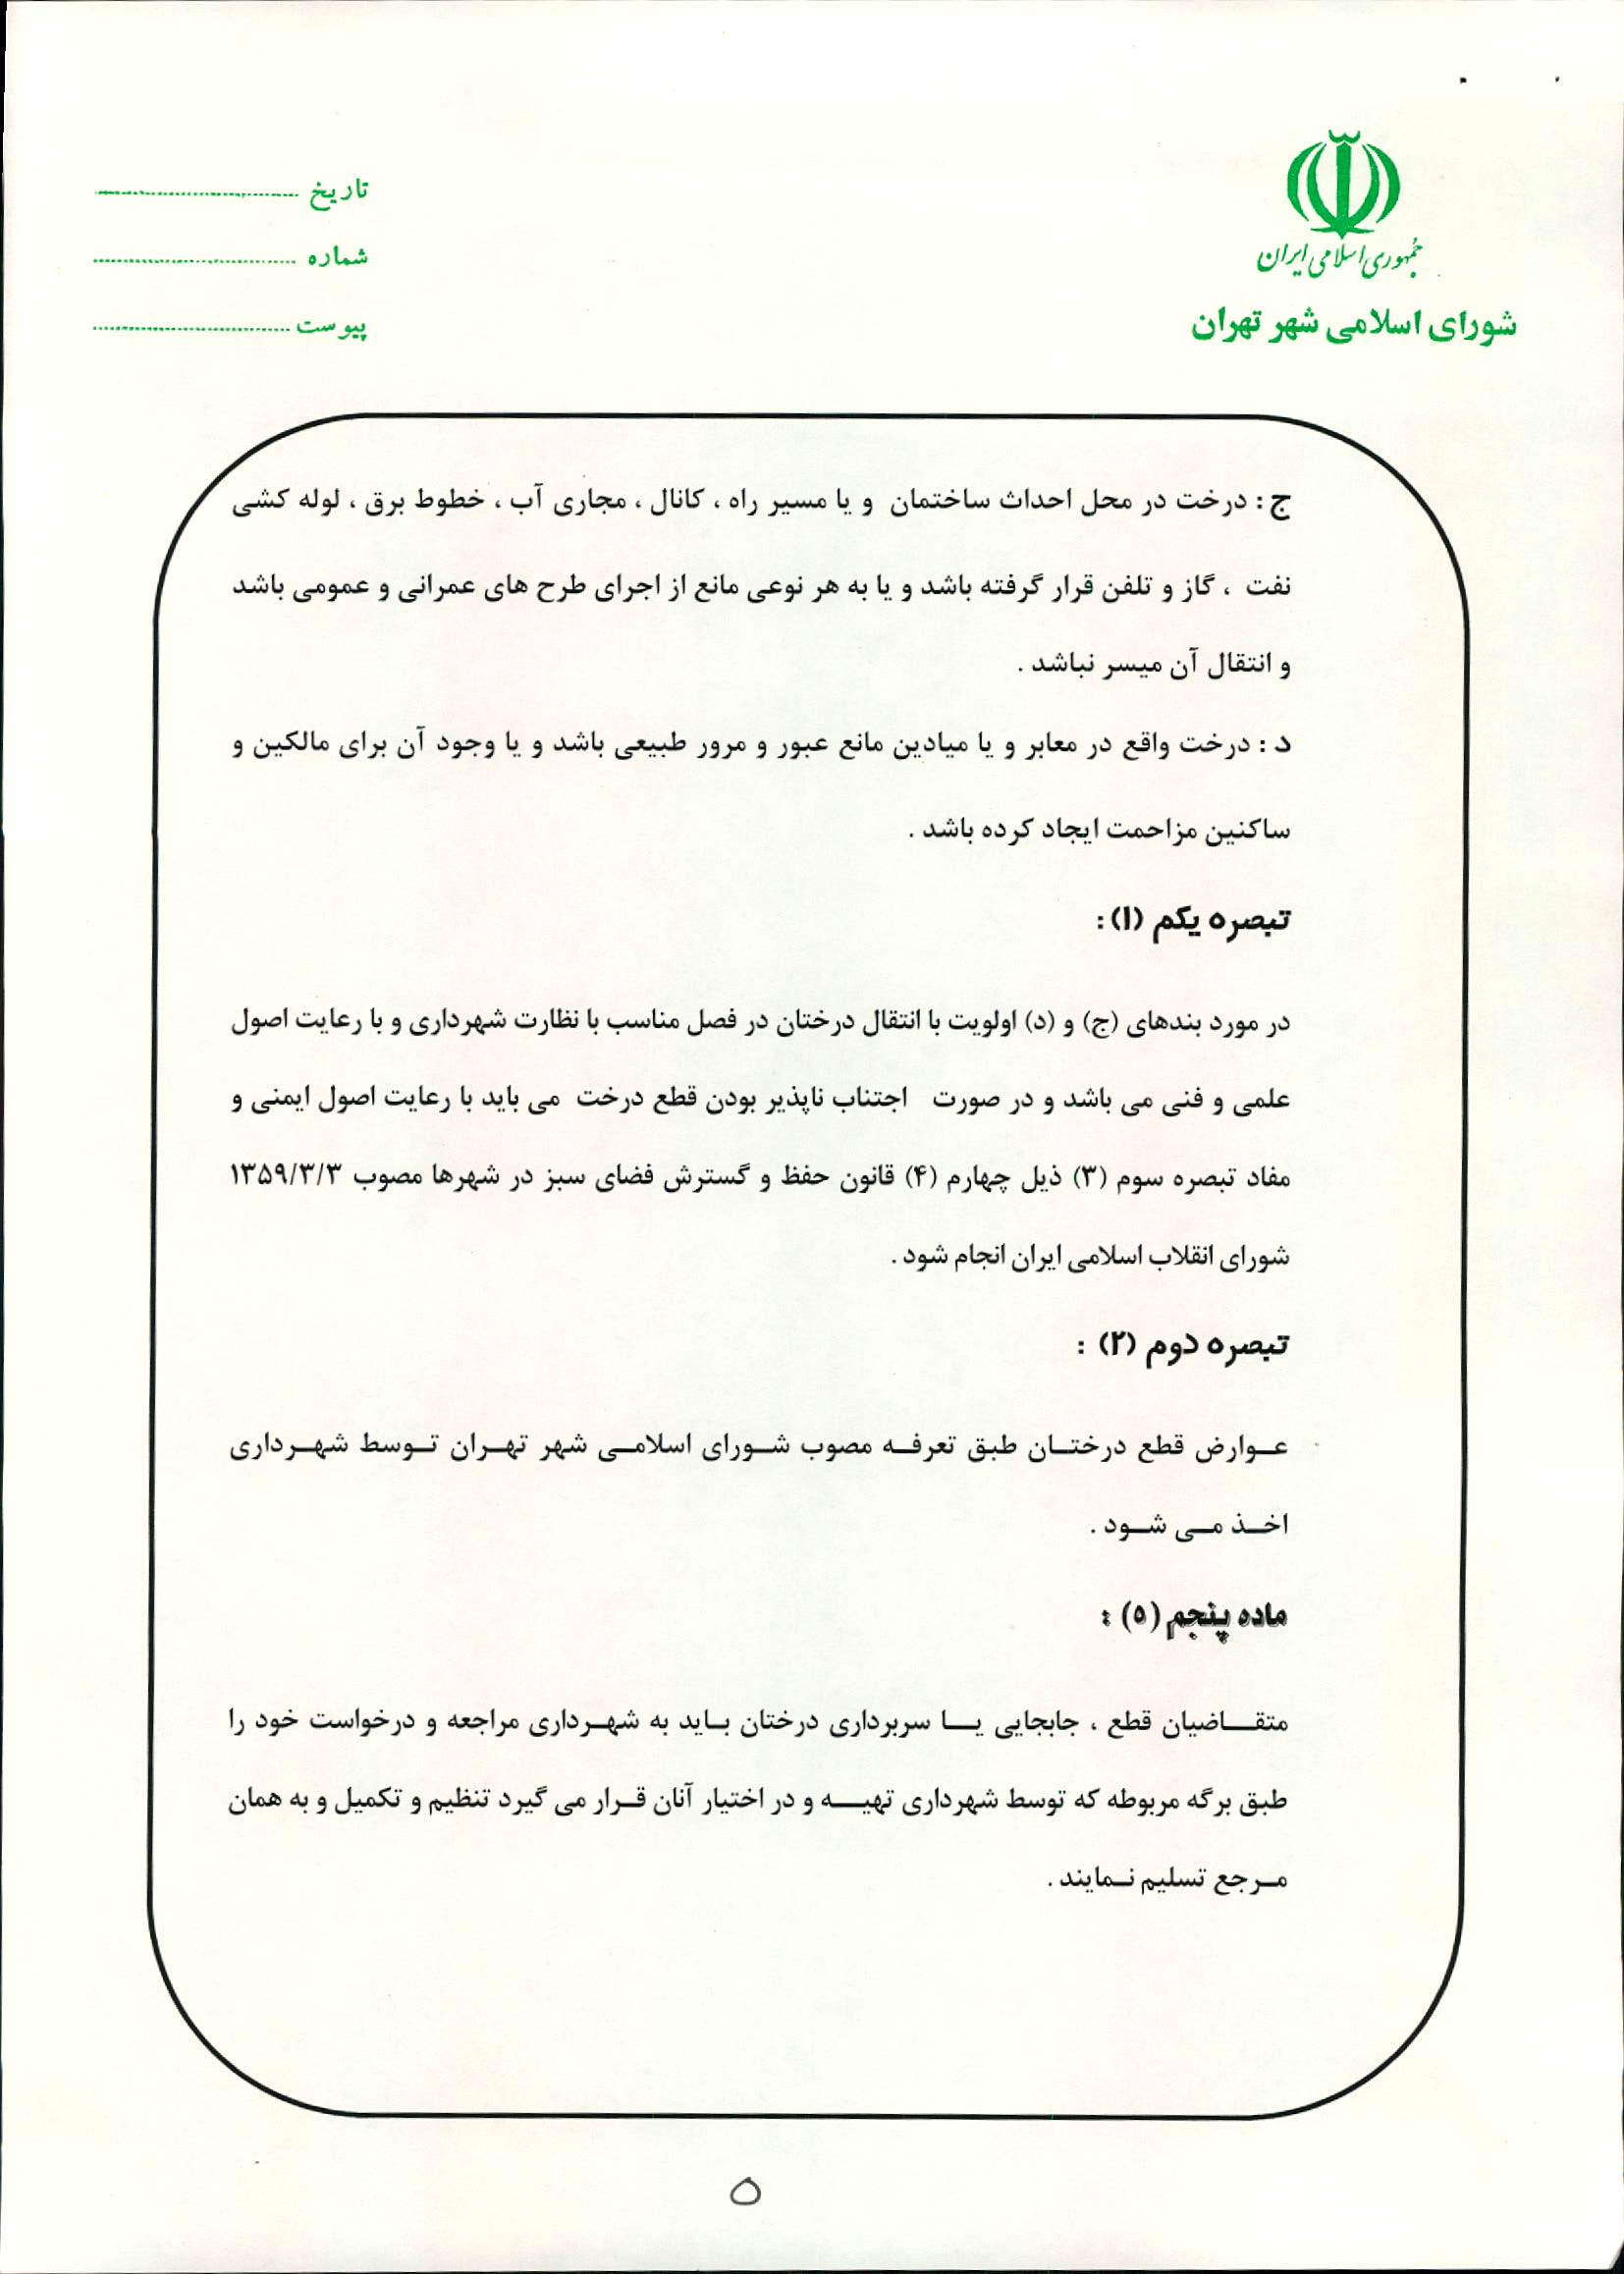 جمهوری اسلامی ایران
شورای اسلامی شهر تهران
تاریخ ..............................
شماره ..............................
پیوست ..............................
ج : درخت در محل احداث ساختمان و یا مسیر راه ، کانال ، مجاری آب ، خطوط برق ، لوله کشی
نفت ، گاز و تلفن قرار گرفته باشد و یا به هر نوعی مانع از اجرای طرح های عمرانی و عمومی باشد
و انتقال آن میسر نباشد .
د : درخت واقع در معابر و یا میادین مانع عبور و مرور طبیعی باشد و یا وجود آن برای مالکین و
ساکنین مزاحمت ایجاد کرده باشد .
تبصره یکم (۱) :
در مورد بندهای (ج) و (د) اولویت با انتقال درختان در فصل مناسب با نظارت شهرداری و با رعایت اصول
علمی و فنی می باشد و در صورت اجتناب ناپذیر بودن قطع درخت می باید با رعایت اصول ایمنی و
مفاد تبصره سوم (۳) ذیل چهارم (۴) قانون حفظ و گسترش فضای سبز در شهرها مصوب ۱۳۵۹/۳/۳
شورای انقلاب اسلامی ایران انجام شود .
تبصره دوم (۲) :
عـوارض قطع درختـان طبق تعرفـه مصوب شـورای اسلامـی شهر تهـران تـوسط شهـرداری
اخـذ مـی شـود .
ماده پنجم (۵) :
متقـــاضیان قطع ، جابجایی یـــا سربرداری درختان بـاید به شهـرداری مراجعه و درخواست خود را
طبق برگه مربوطه که توسط شهرداری تهیـــه و در اختیار آنان قـرار می گیرد تنظیم و تکمیل و به همان
مـرجع تسلیم نـمایند .
۵